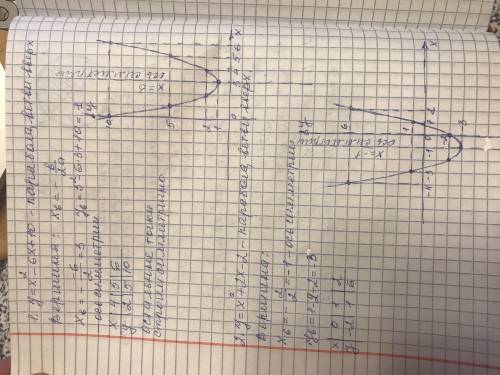 1. y=x²-6x+10 - парабола, ветви вверх
Вершина: xв = -b/2a
xв = -(-6)/2 = 3  yв = 3²-6·3+10 = 1
ось симметрии
x | 4 | 5 | 6
y | 2 | 5 | 10
остальные точки
строим симметрично
y
10
5
2
1
0
3 4 5 6
x
x=3
ось симметрии
2. y=x²+2x-2 - парабола, ветви вверх
Вершина:
xв = -2/2 = -1 - ось симметрии
yв = 1-2-2 = -3
x 0 1 2
y -2 1 6
y
6
1
-4 -3 -1 0 1 2
x
-2
-3
x=-1
ось симметрии